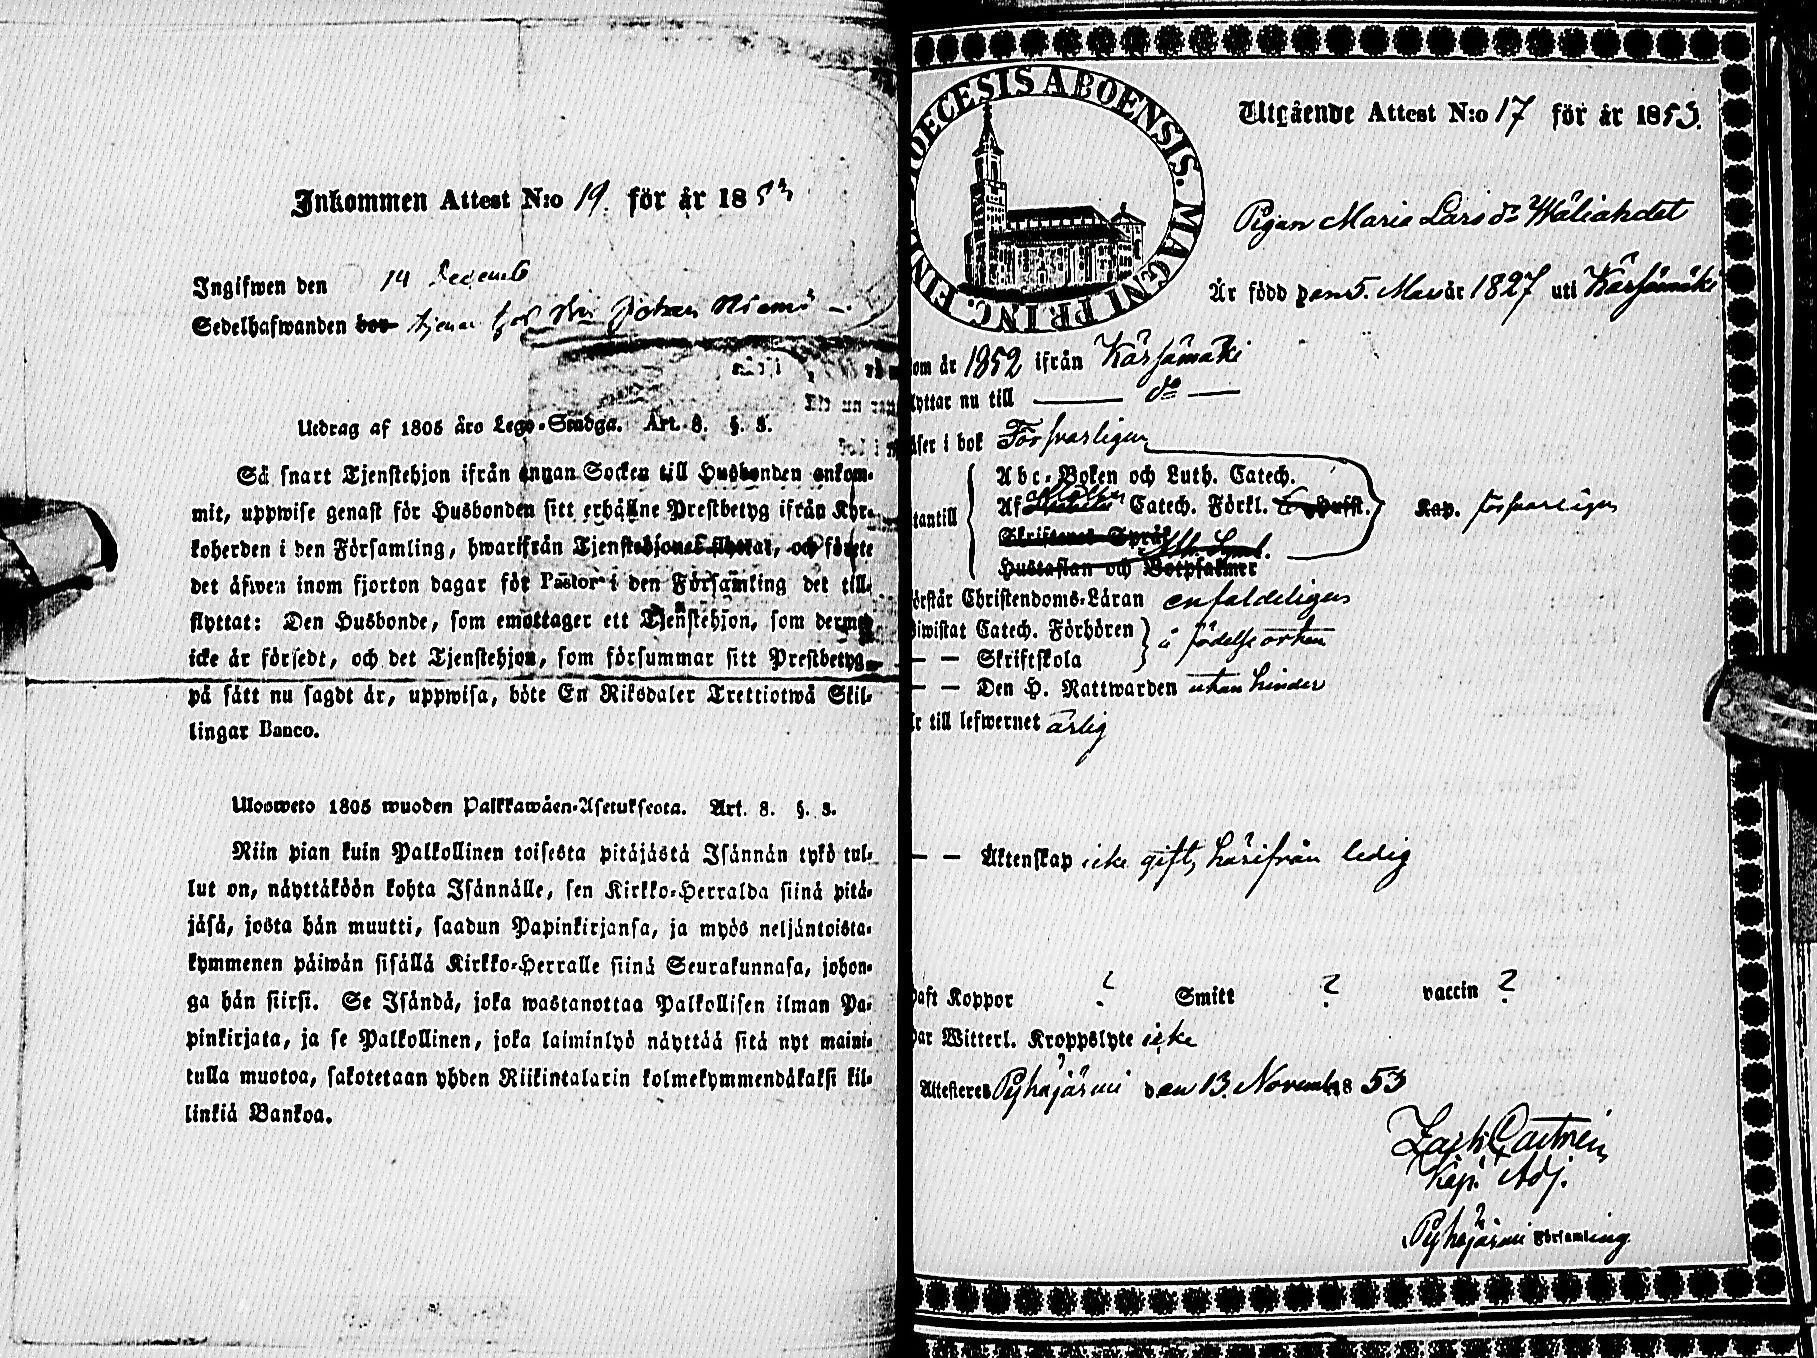 Inkommen Attest N:o 19. för år 1853
Ingifwen den 14 Decemb
Sedelhafwanden bor tjenar hos Johan Niemi
Utdrag af 1805 års Lego-Stadga. Art. 8. §. 3.
Så snart Tjenstehjon ifrån annan Socken till Husbonden ankom-
mit, uppwise genast för Husbonden sitt erhållne Prestbetyg ifrån Kyr-
koherden i den Församling, hwarifrån Tjenstehjonet flyttat, och förete
det äfwen inom fjorton dagar för Pastor i den Församling det till-
flyttat: Den Husbonde, som emottager ett Tjenstehjon, som dermed
icke är försedt, och det Tjenstehjon, som försummar sitt Prestbetyg
på sätt nu sagdt är, uppwisa, böte En Riksdaler Trettiotwå Skil-
lingar Banco.
Ulosweto 1805 wuoden Palkkawäen-Asetuksesta. Art. 8. §. 3.
Niin pian kuin Palkollinen toisesta pitäjästä Isännän tykö tul-
lut on, näyttäköön kohta Isännälle, sen Kirkko-Herralda siinä pitä-
jäsä, josta hän muutti, saadun Papinkirjansa, ja myös neljäntoista-
kymmenen päiwän sisällä Kirkko-Herralle siinä Seurakunnasa, johon-
ga hän siirsi. Se Isändä, joka wastanottaa Palkollisen ilman Pa-
pinkirjata, ja se Palkollinen, joka laiminlyö näyttää sitä nyt maini-
tulla muotoa, sakotetaan yhden Riikintalarin kolmekymmendäkaksi kil-
linkiä Bankoa.
DECESIS ABOENSIS. MAGNI PRINC. FIN
Utgående Attest N:o 17 för år 1853.
Pigan Maria Lars dr Wäliahdet
Är född den 5. Mars år 1827 uti Kärsämäki
om år 1852 ifrån Kärsämäki
lyttar nu till — do —
äser i bok Försvarligen
tantill
Abc-Boken och Luth. Catech.
Af Catech. Förkl. Hufst.
Skriftenes Språk
Ath. Symb.
Hustaflan och Botpsalmer
Kap. försvarligen
örstår Christendoms-Läran enfaldeligen
iwistat Catech. Förhören
— — Skriftskola
å födelse orten
— — Den H. Nattwarden utan hinder
r till lefwernet ärlig
— — Äktenskap icke gift, härifrån ledig
haft Koppor ? Smitt ? vaccin ?
har Witterl. Kroppslyte icke
Attesteres Pyhäjärwi den 13. Novemb. 1853
Zach Castrén
Kap. Adj.
Pyhäjärwi Församling